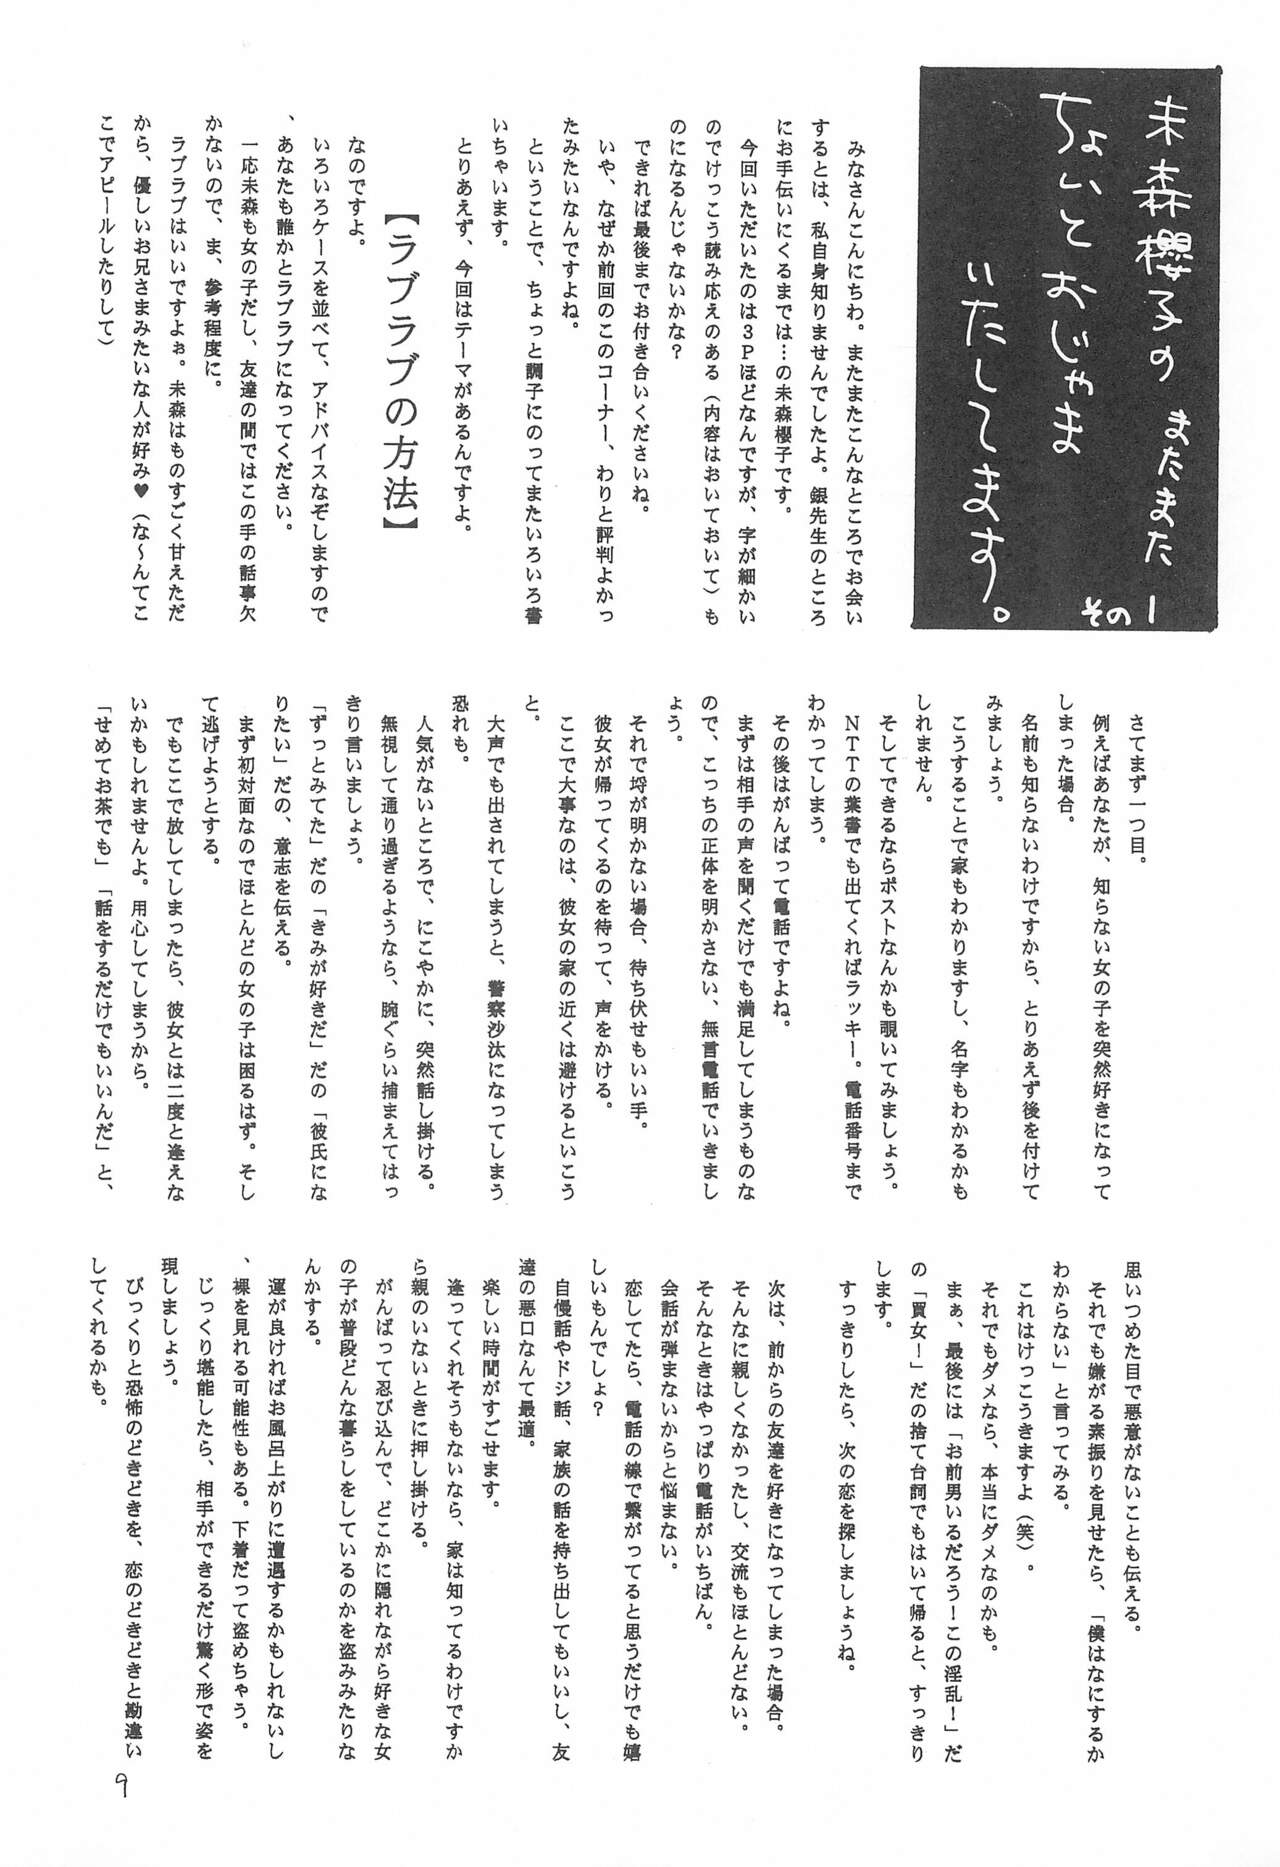 未森櫻子の またまた
ちょいとおじゃま
いたしてます。
その1
みなさんこんにちわ。またまたこんなところでお会い
するとは、私自身知りませんでしたよ。銀先生のところ
にお手伝いにくるまでは…の未森櫻子です。
今回いただいたのは3Pほどなんですが、字が細かい
のでけっこう読み応えのある（内容はおいておいて）も
のになるんじゃないかな？
できれば最後までお付き合いくださいね。
いや、なぜか前回のこのコーナー、わりと評判よかっ
たみたいなんですよね。
ということで、ちょっと調子にのってまたいろいろ書
いちゃいます。
とりあえず、今回はテーマがあるんですよ。
【ラブラブの方法】
なのですよ。
いろいろケースを並べて、アドバイスなぞしますので
、あなたも誰かとラブラブになってください。
一応未森も女の子だし、友達の間ではこの手の話事欠
かないので、ま、参考程度に。
ラブラブはいいですよぉ。未森はものすごく甘えただ
から、優しいお兄さまみたいな人が好み♥（な〜んてこ
こでアピールしたりして）
さてまず一つ目。
例えばあなたが、知らない女の子を突然好きになって
しまった場合。
名前も知らないわけですから、とりあえず後を付けて
みましょう。
こうすることで家もわかりますし、名字もわかるかも
しれません。
そしてできるならポストなんかも覗いてみましょう。
NTTの葉書でも出てくればラッキー。電話番号まで
わかってしまう。
その後はがんばって電話ですよね。
まずは相手の声を聞くだけでも満足してしまうものな
ので、こっちの正体を明かさない、無言電話でいきまし
ょう。
それで埒が明かない場合、待ち伏せもいい手。
彼女が帰ってくるのを待って、声をかける。
ここで大事なのは、彼女の家の近くは避けるというこ
と。
大声でも出されてしまうと、警察沙汰になってしまう
恐れも。
人気がないところで、にこやかに、突然話し掛ける。
無視して通り過ぎるようなら、腕ぐらい捕まえてはっ
きり言いましょう。
「ずっとみてた」だの「きみが好きだ」だの「彼氏にな
りたい」だの、意志を伝える。
まず初対面なのでほとんどの女の子は困るはず。そし
て逃げようとする。
でもここで放してしまったら、彼女とは二度と逢えな
いかもしれませんよ。用心してしまうから。
「せめてお茶でも」「話をするだけでもいいんだ」と、
思いつめた目で悪意がないことも伝える。
それでも嫌がる素振りを見せたら、「僕はなにするか
わからない」と言ってみる。
これはけっこうきますよ（笑）。
それでもダメなら、本当にダメなのかも。
まぁ、最後には「お前男いるだろう！この淫乱！」だ
の「買女！」だの捨て台詞でもはいて帰ると、すっきり
します。
すっきりしたら、次の恋を探しましょうね。
次は、前からの友達を好きになってしまった場合。
そんなに親しくなかったし、交流もほとんどない。
そんなときはやっぱり電話がいちばん。
会話が弾まないからと悩まない。
恋してたら、電話の線で繋がってると思うだけでも嬉
しいもんでしょ？
自慢話やドジ話、家族の話を持ち出してもいいし、友
達の悪口なんて最適。
楽しい時間がすごせます。
逢ってくれそうもないなら、家は知ってるわけですか
ら親のいないときに押し掛ける。
がんばって忍び込んで、どこかに隠れながら好きな女
の子が普段どんな暮らしをしているのかを盗みみたりな
んかする。
運が良ければお風呂上がりに遭遇するかもしれないし
、裸を見れる可能性もある。下着だって盗めちゃう。
じっくり堪能したら、相手ができるだけ驚く形で姿を
現しましょう。
びっくりと恐怖のどきどきを、恋のどきどきと勘違い
してくれるかも。
9